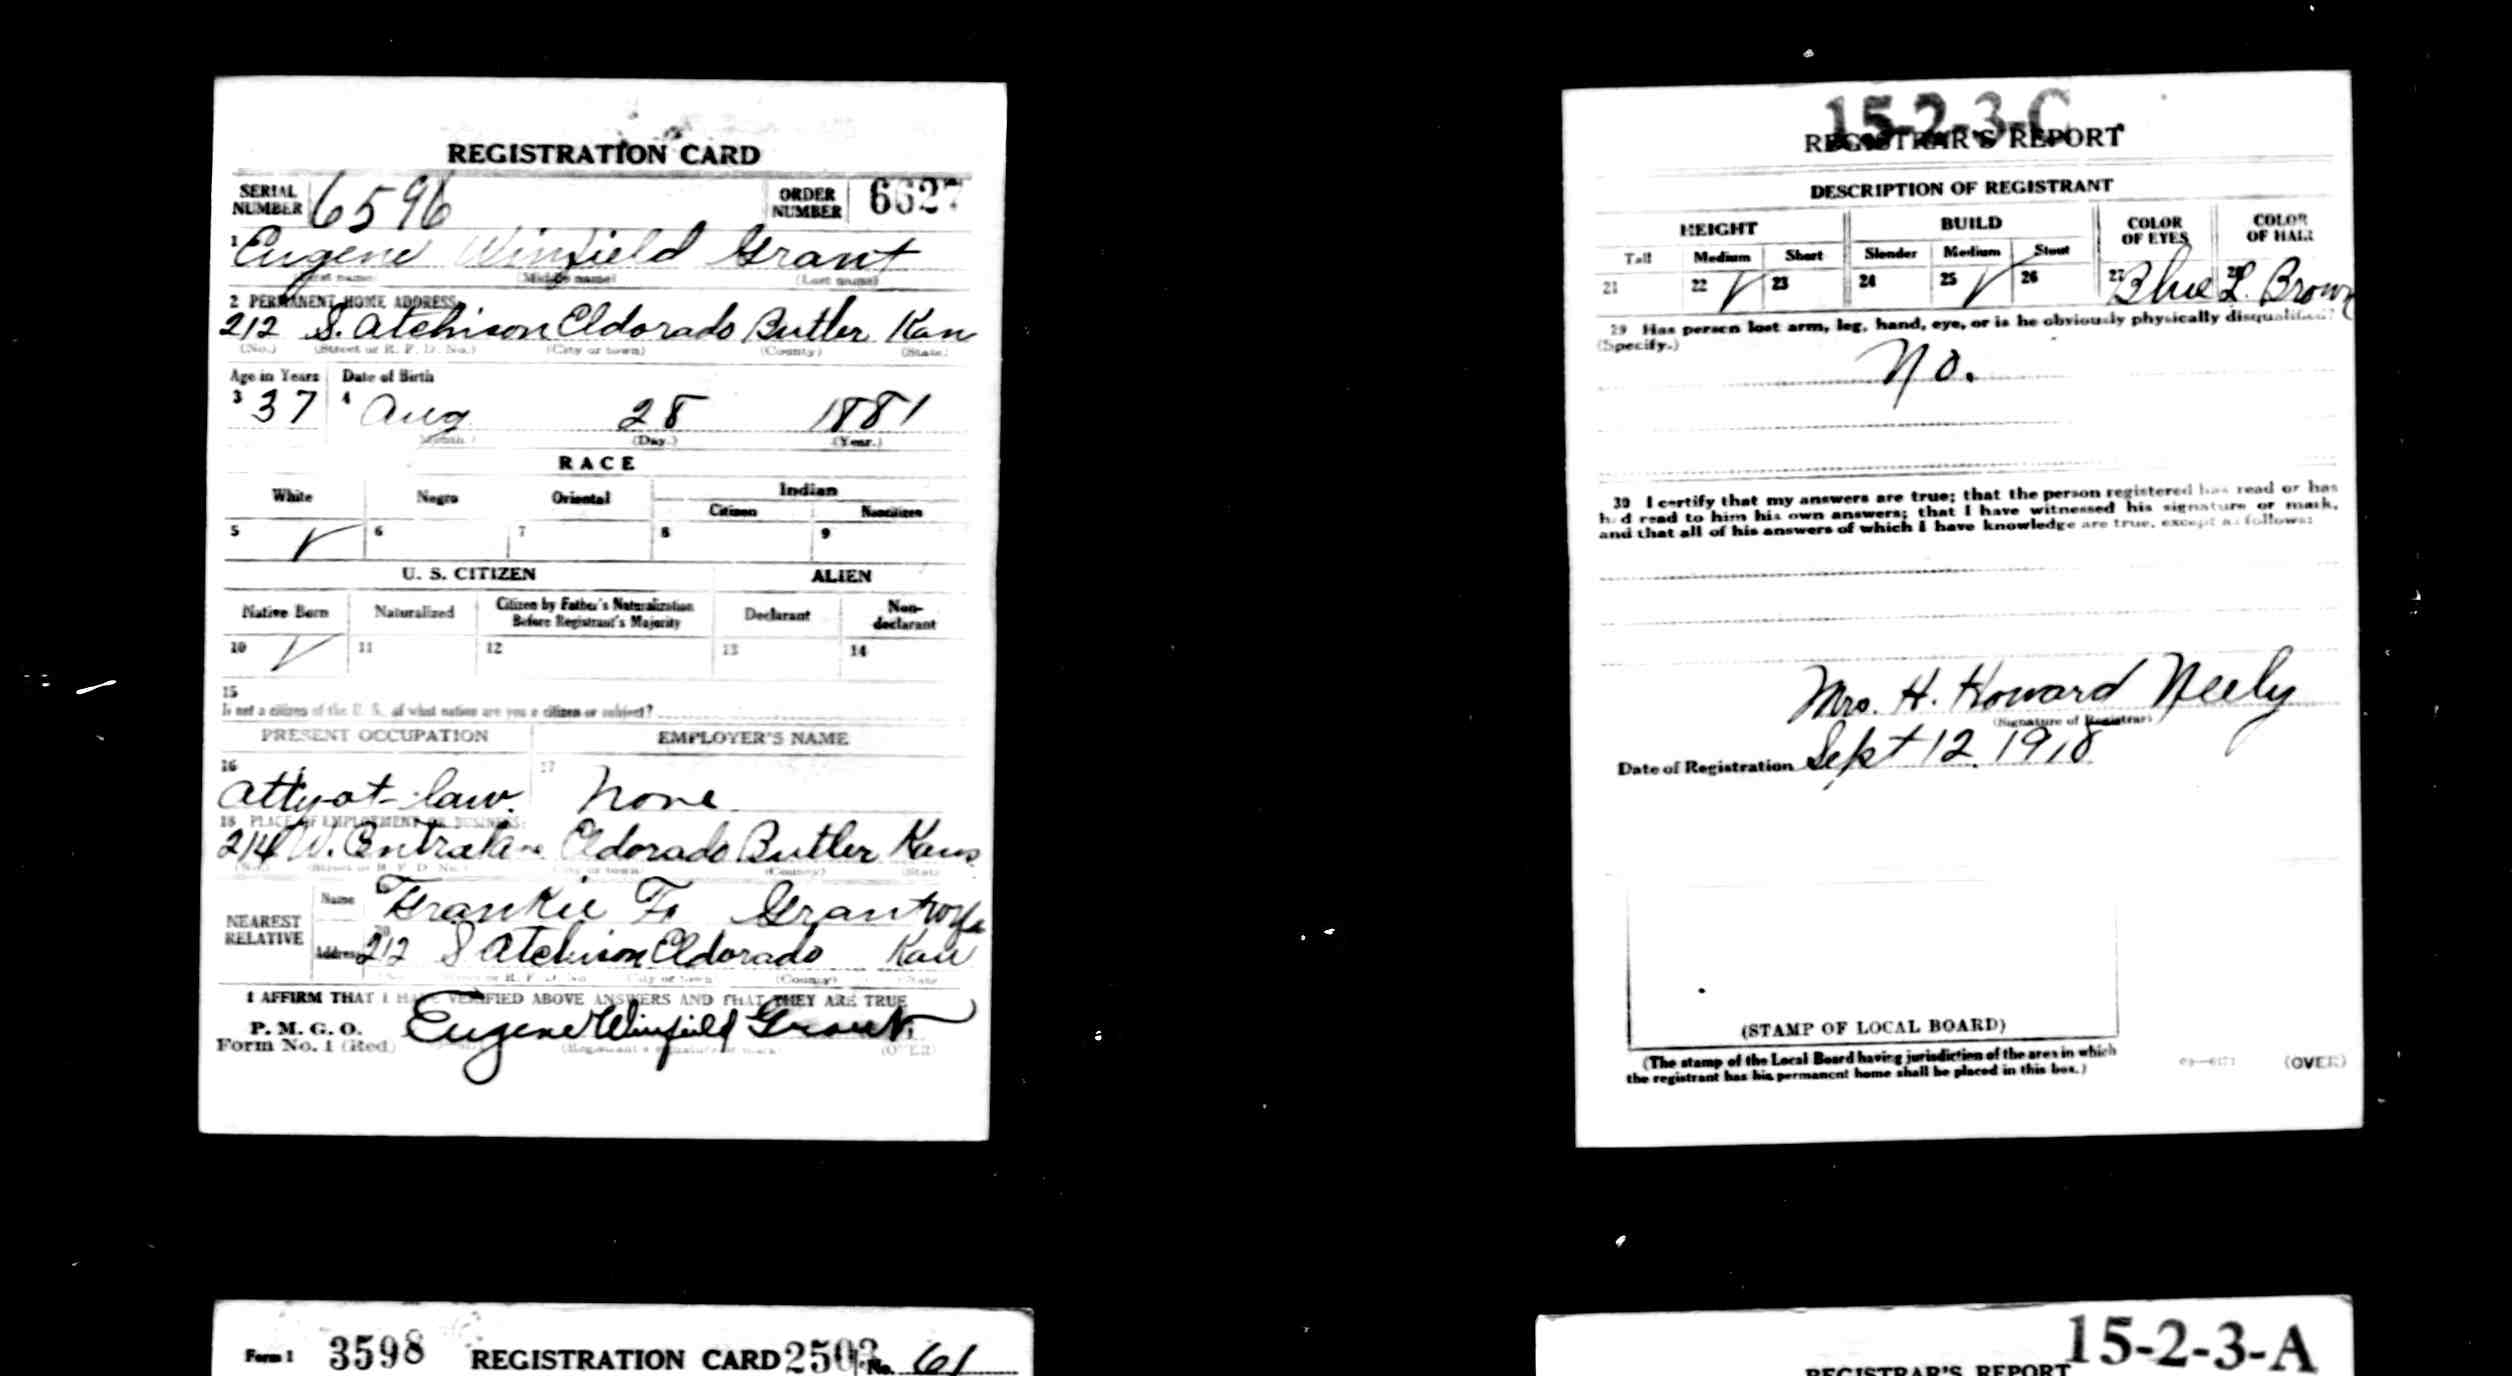 REGISTRATION CARD
SERIAL NUMBER 6596 ORDER NUMBER 6627
1 Eugene Winfield Grant
(First name) (Middle name) (Last name)
2 PERMANENT HOME ADDRESS
212 S. Atchison Eldorado Butler Kan
(No.) (Street or R. F. D. No.) (City or town) (County) (State)
Age in Years Date of Birth
3 37 4 Aug 28 1881
(Month.) (Day.) (Year.)
RACE
White Negro Oriental Indian
Citizen Noncitizen
5 ✓ 6 7 8 9
U. S. CITIZEN ALIEN
Native Born Naturalized Citizen by Father's Naturalization Before Registrant's Majority Declarant Non-declarant
10 ✓ 11 12 13 14
15
If not a citizen of the U. S., of what nation are you a citizen or subject?
PRESENT OCCUPATION EMPLOYER'S NAME
16 Atty-at-law. 17 None
18 PLACE OF EMPLOYMENT OR BUSINESS:
214 W. Central Eldorado Butler Kans
(No.) (Street or R. F. D. No.) (City or town) (County) (State)
NEAREST RELATIVE
Name Frankie F. Grant wife
Address 212 S Atchison Eldorado Kan
(City or town) (County) (State)
I AFFIRM THAT I HAVE VERIFIED ABOVE ANSWERS AND THAT THEY ARE TRUE
P. M. G. O.
Form No. 1 (Red) Eugene Winfield Grant
(Registrant's signature or mark) (OVER)
15-2-3-C
REGISTRAR'S REPORT
DESCRIPTION OF REGISTRANT
HEIGHT BUILD COLOR OF EYES COLOR OF HAIR
Tall Medium Short Slender Medium Stout
21 22 ✓ 23 24 25 ✓ 26 27 Blue 28 L. Brown
29 Has person lost arm, leg, hand, eye, or is he obviously physically disqualified?
(Specify.)
No.
30 I certify that my answers are true; that the person registered has read or has
had read to him his own answers; that I have witnessed his signature or mark,
and that all of his answers of which I have knowledge are true, except as follows:
Mrs. H. Howard Neely
(Signature of Registrar)
Date of Registration Sept 12, 1918
(STAMP OF LOCAL BOARD)
(The stamp of the Local Board having jurisdiction of the area in which
the registrant has his permanent home shall be placed in this box.)
(OVER)
Form 1 3598 REGISTRATION CARD No. 61
15-2-3-A
REGISTRAR'S REPORT